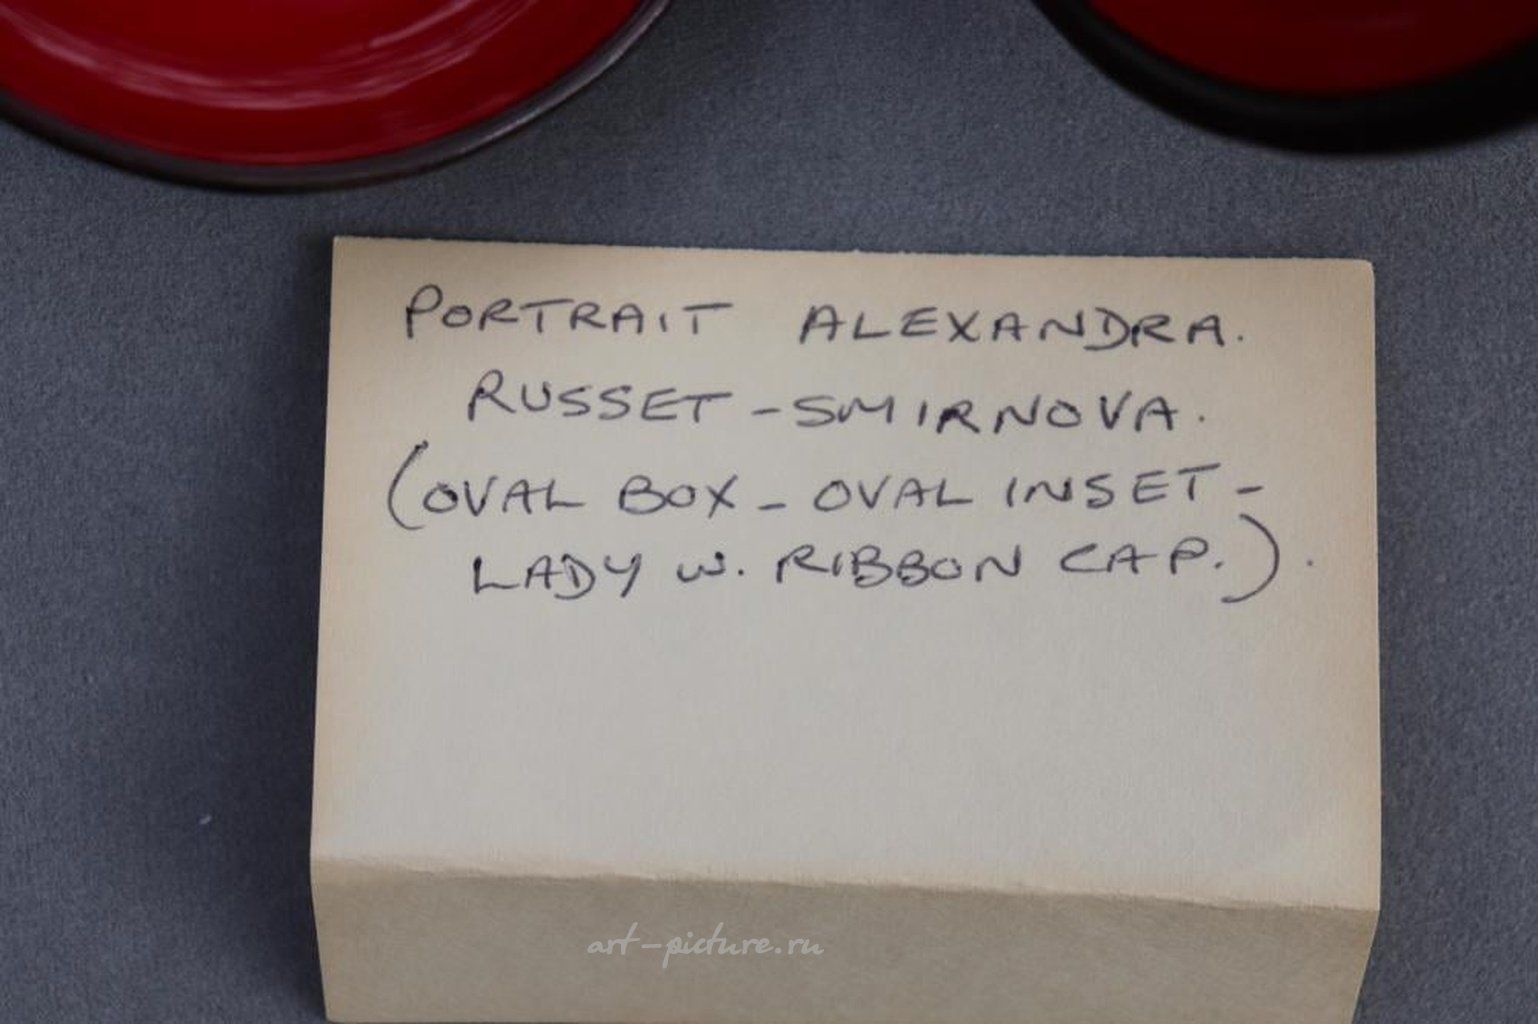 PORTRAIT ALEXANDRA.
RUSSET-SMIRNOVA.
(OVAL BOX - OVAL INSET -
LADY W. RIBBON CAP.).
art-picture.ru